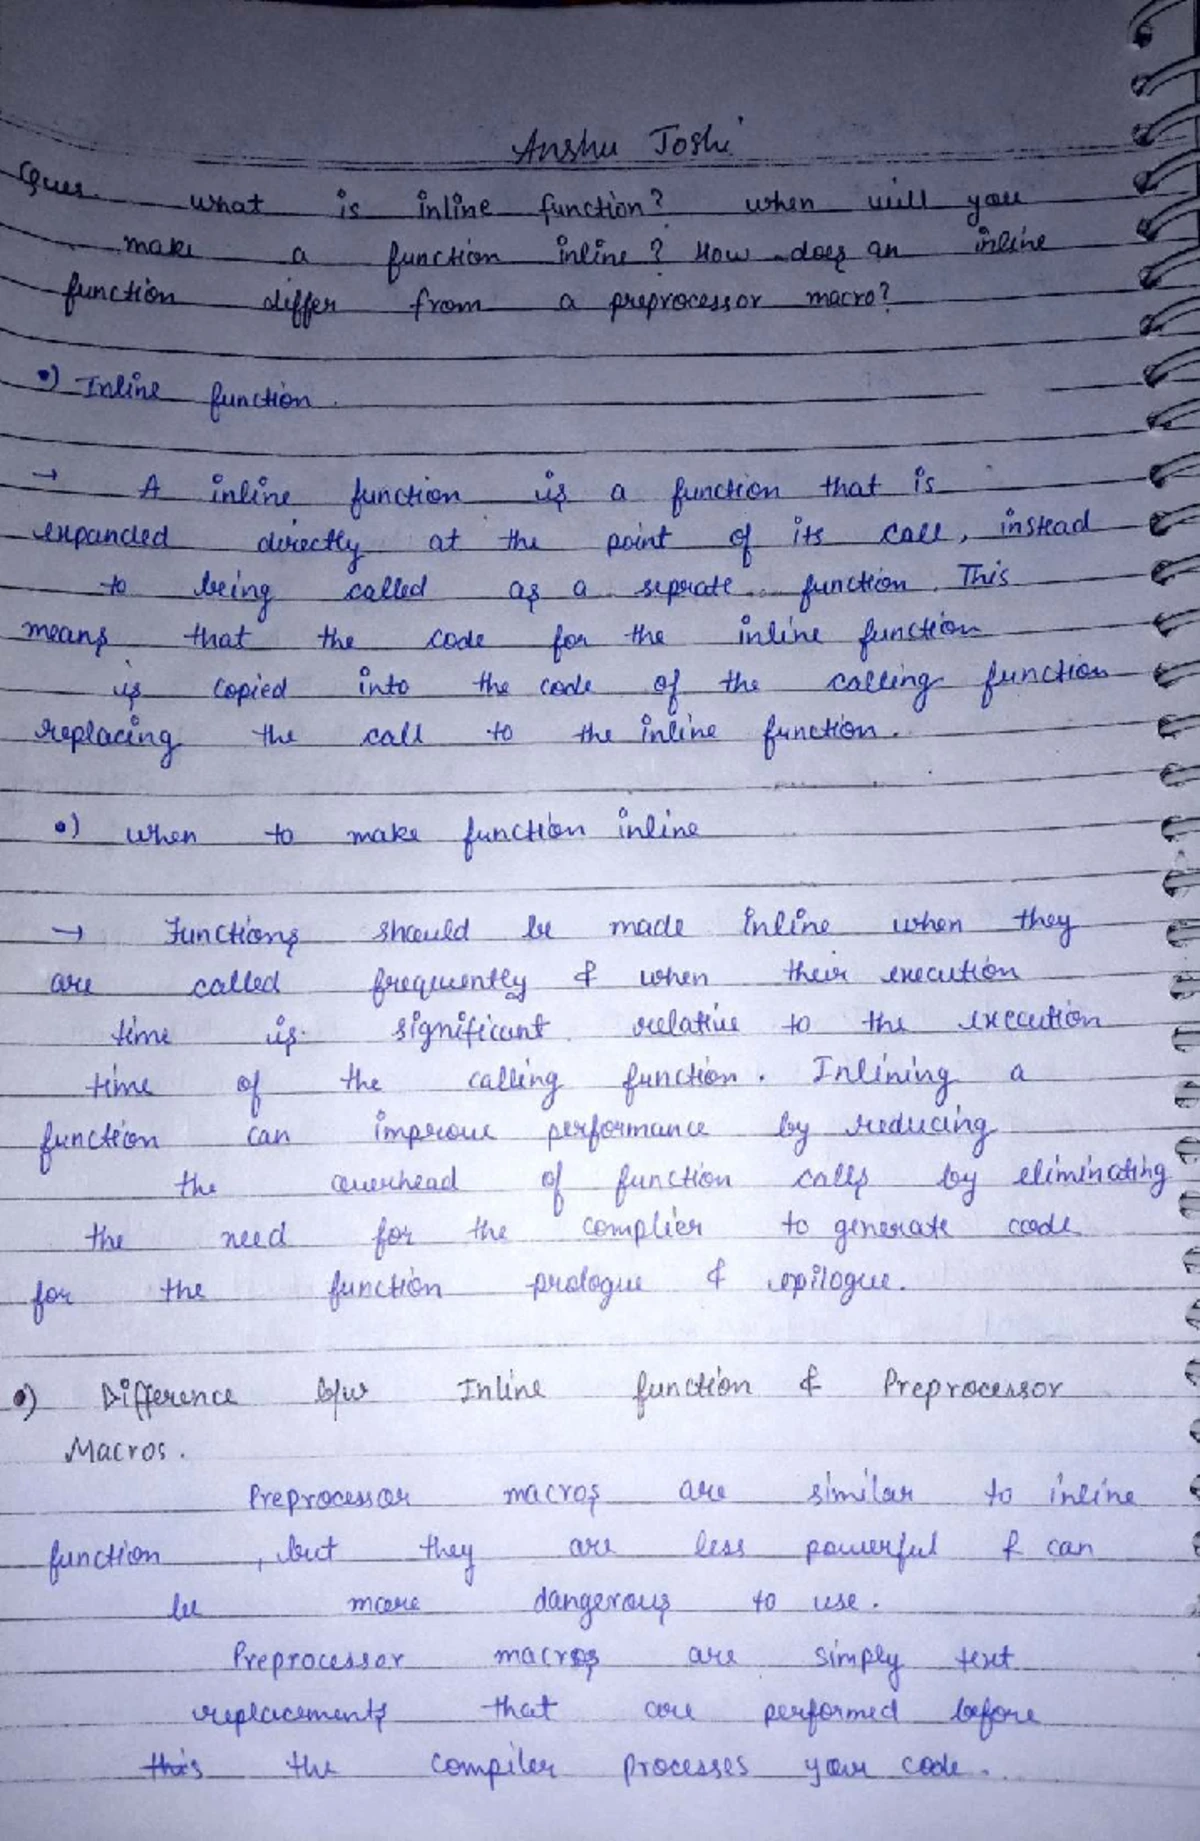 Anshu Joshi
Ques. what is inline function? when will you
make a function inline? How does an inline
function differ from a preprocessor macro?
•) Inline function.
→ A inline function is a function that is
expanded directly at the point of its call, instead
to being called as a seprate function. This
means that the code for the inline function
is copied into the code of the calling function
replacing the call to the inline function.
•) when to make function inline
→ Functions should be made inline when they
are called frequently & when their execution
time is significant relative to the execution
time of the calling function. Inlining a
function can improve performance by reducing
the overhead of function calls by eliminating
the need for the complier to generate code
for the function prologue & epilogue.
•) Difference b/w Inline function & Preprocessor
Macros.
Preprocessor macros are similar to inline
function, but they are less powerful & can
be more dangerous to use.
Preprocessor macros are simply text
replacements that are performed before
this the compiler processes your code.